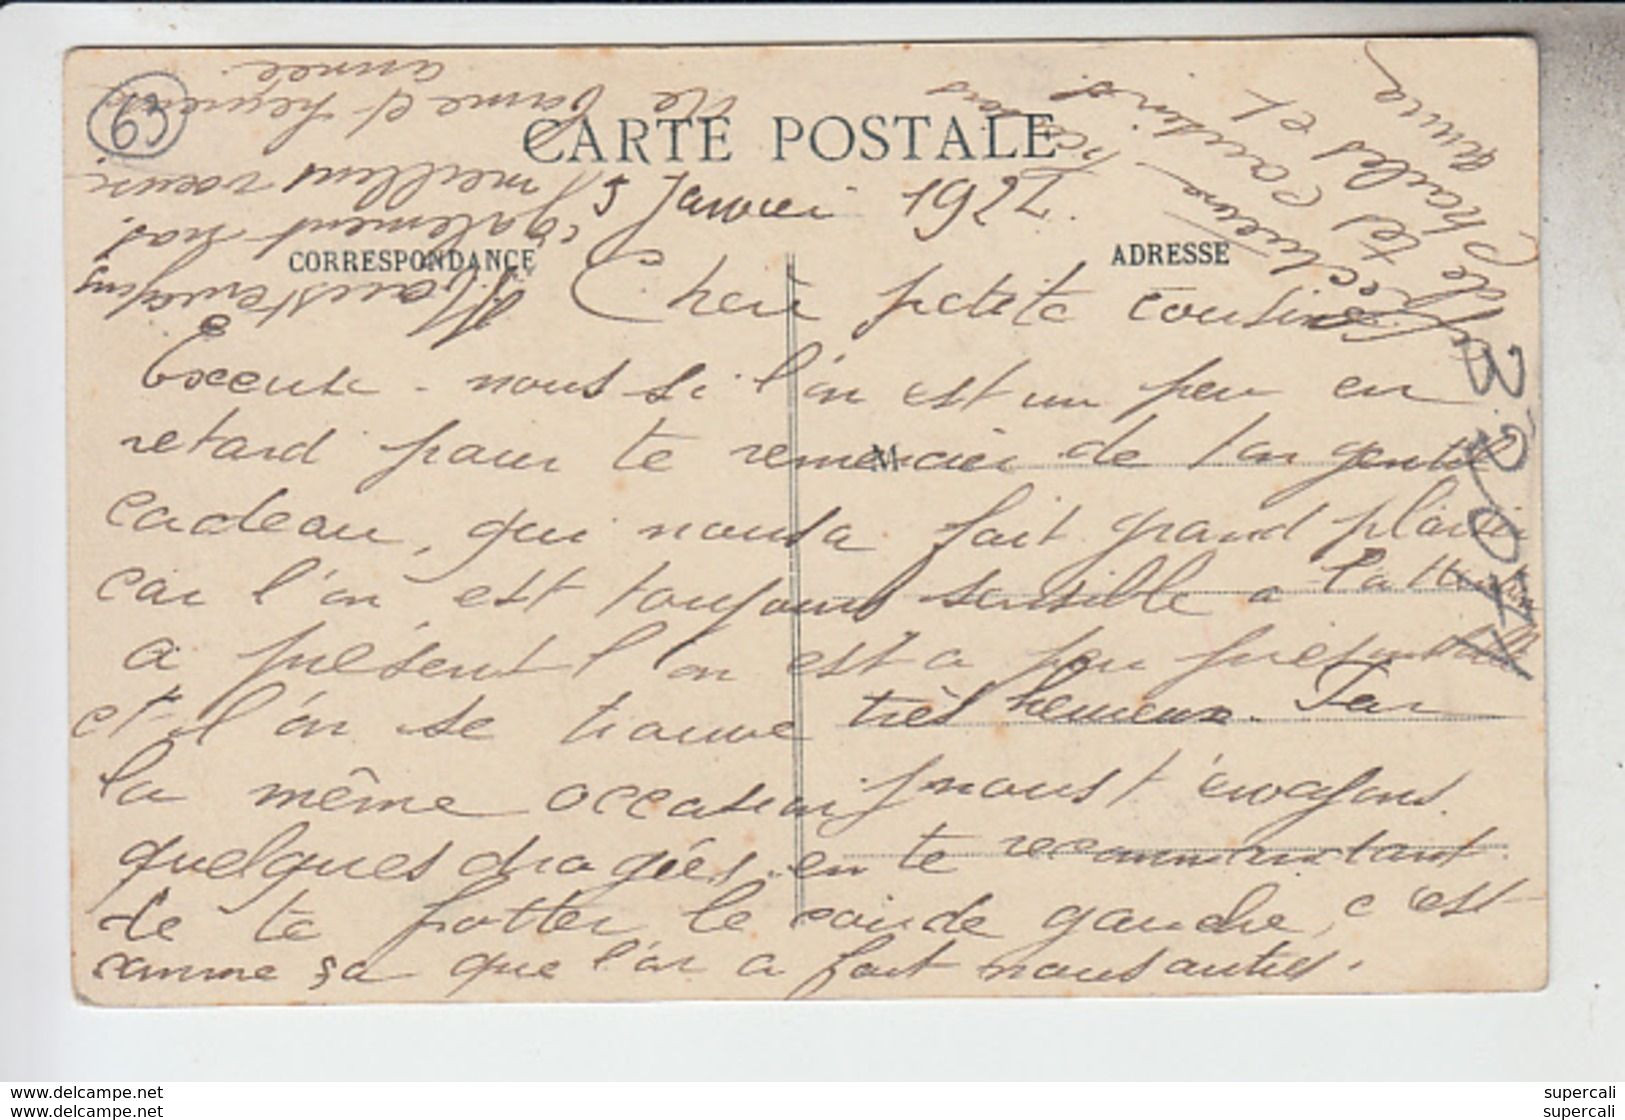 CARTE POSTALE
5 Janvier 1922.
CORRESPONDANCE
ADRESSE
Chère petite cousine
Excuse - nous si l'on est un peu en
retard pour te remercier de ton gentil
cadeau, qui nous a fait grand plaisir
car l'on est toujours sensible a l'attention
a présent l'on est a peu près
et l'on se trouve très heureux. Par
la même occasion nous t'envoyons
quelques dragées. en te recommandant
de te frotter le coude gauche, c'est
comme sa que l'on a fait nous autres.
également nos
meilleurs vœux
de bonne et heureuse
année.
de Charles et
tes cousins et
69
B2204
M
supercali
supercali
www.delcampe.net
www.delcampe.net